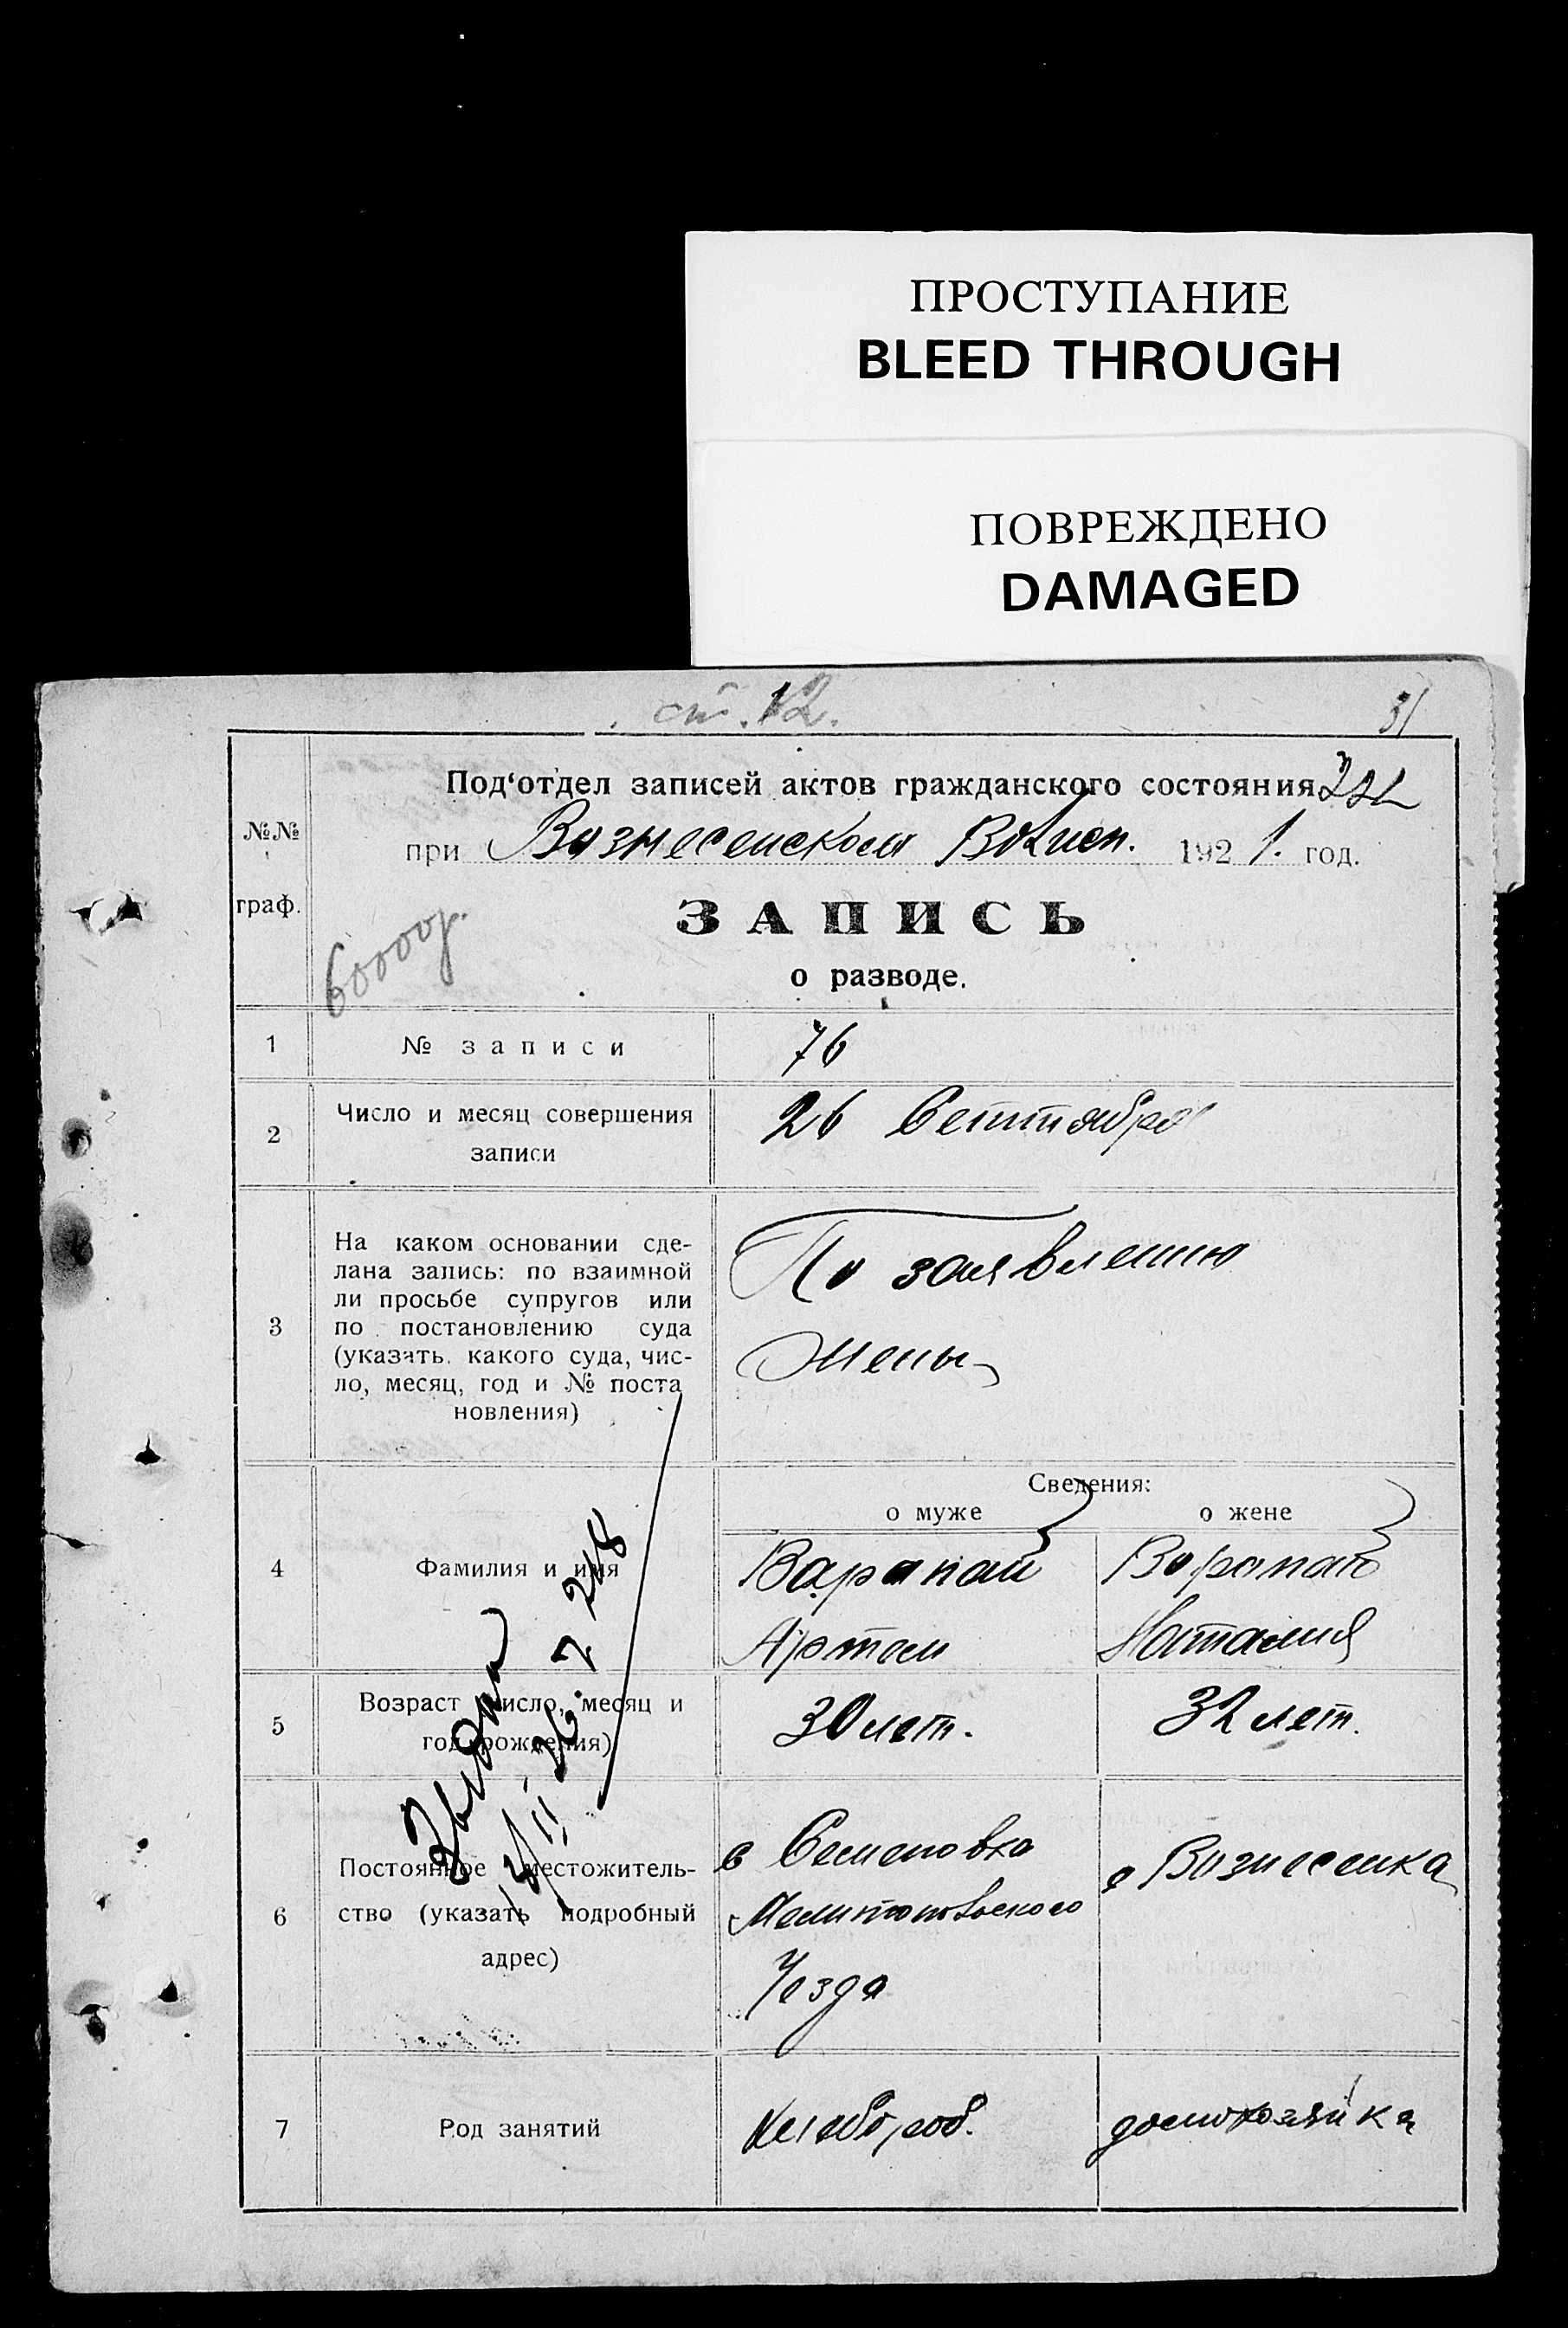 ПРОСТУПАНИЕ
BLEED THROUGH
ПОВРЕЖДЕНО
DAMAGED
ст. 12.
31
Под'отдел записей актов гражданского состояния
при Вознесенском Волисп. 1921. год.
№№
граф.
60000р.
ЗАПИСЬ
о разводе.
1 № записи 76
2 Число и месяц совершения
записи
26 Сентября
3 На каком основании сде-
лана запись: по взаимной
ли просьбе супругов или
по постановлению суда
(указать. какого суда, чис-
ло, месяц, год и № поста
новления)
По заявлению
жены
Сведения:
о муже о жене
4 Фамилия и имя
Варапай Ворапай
Артем Наталия
5 Возраст число, месяц и
год рождения)
30 лет. 32 лет.
6 Постоянное местожитель-
ство (указать подробный
адрес)
с Семеновка
Мелитопольского
Уезда
с Вознесенка
7 Род занятий хлебороб. домохозяйка